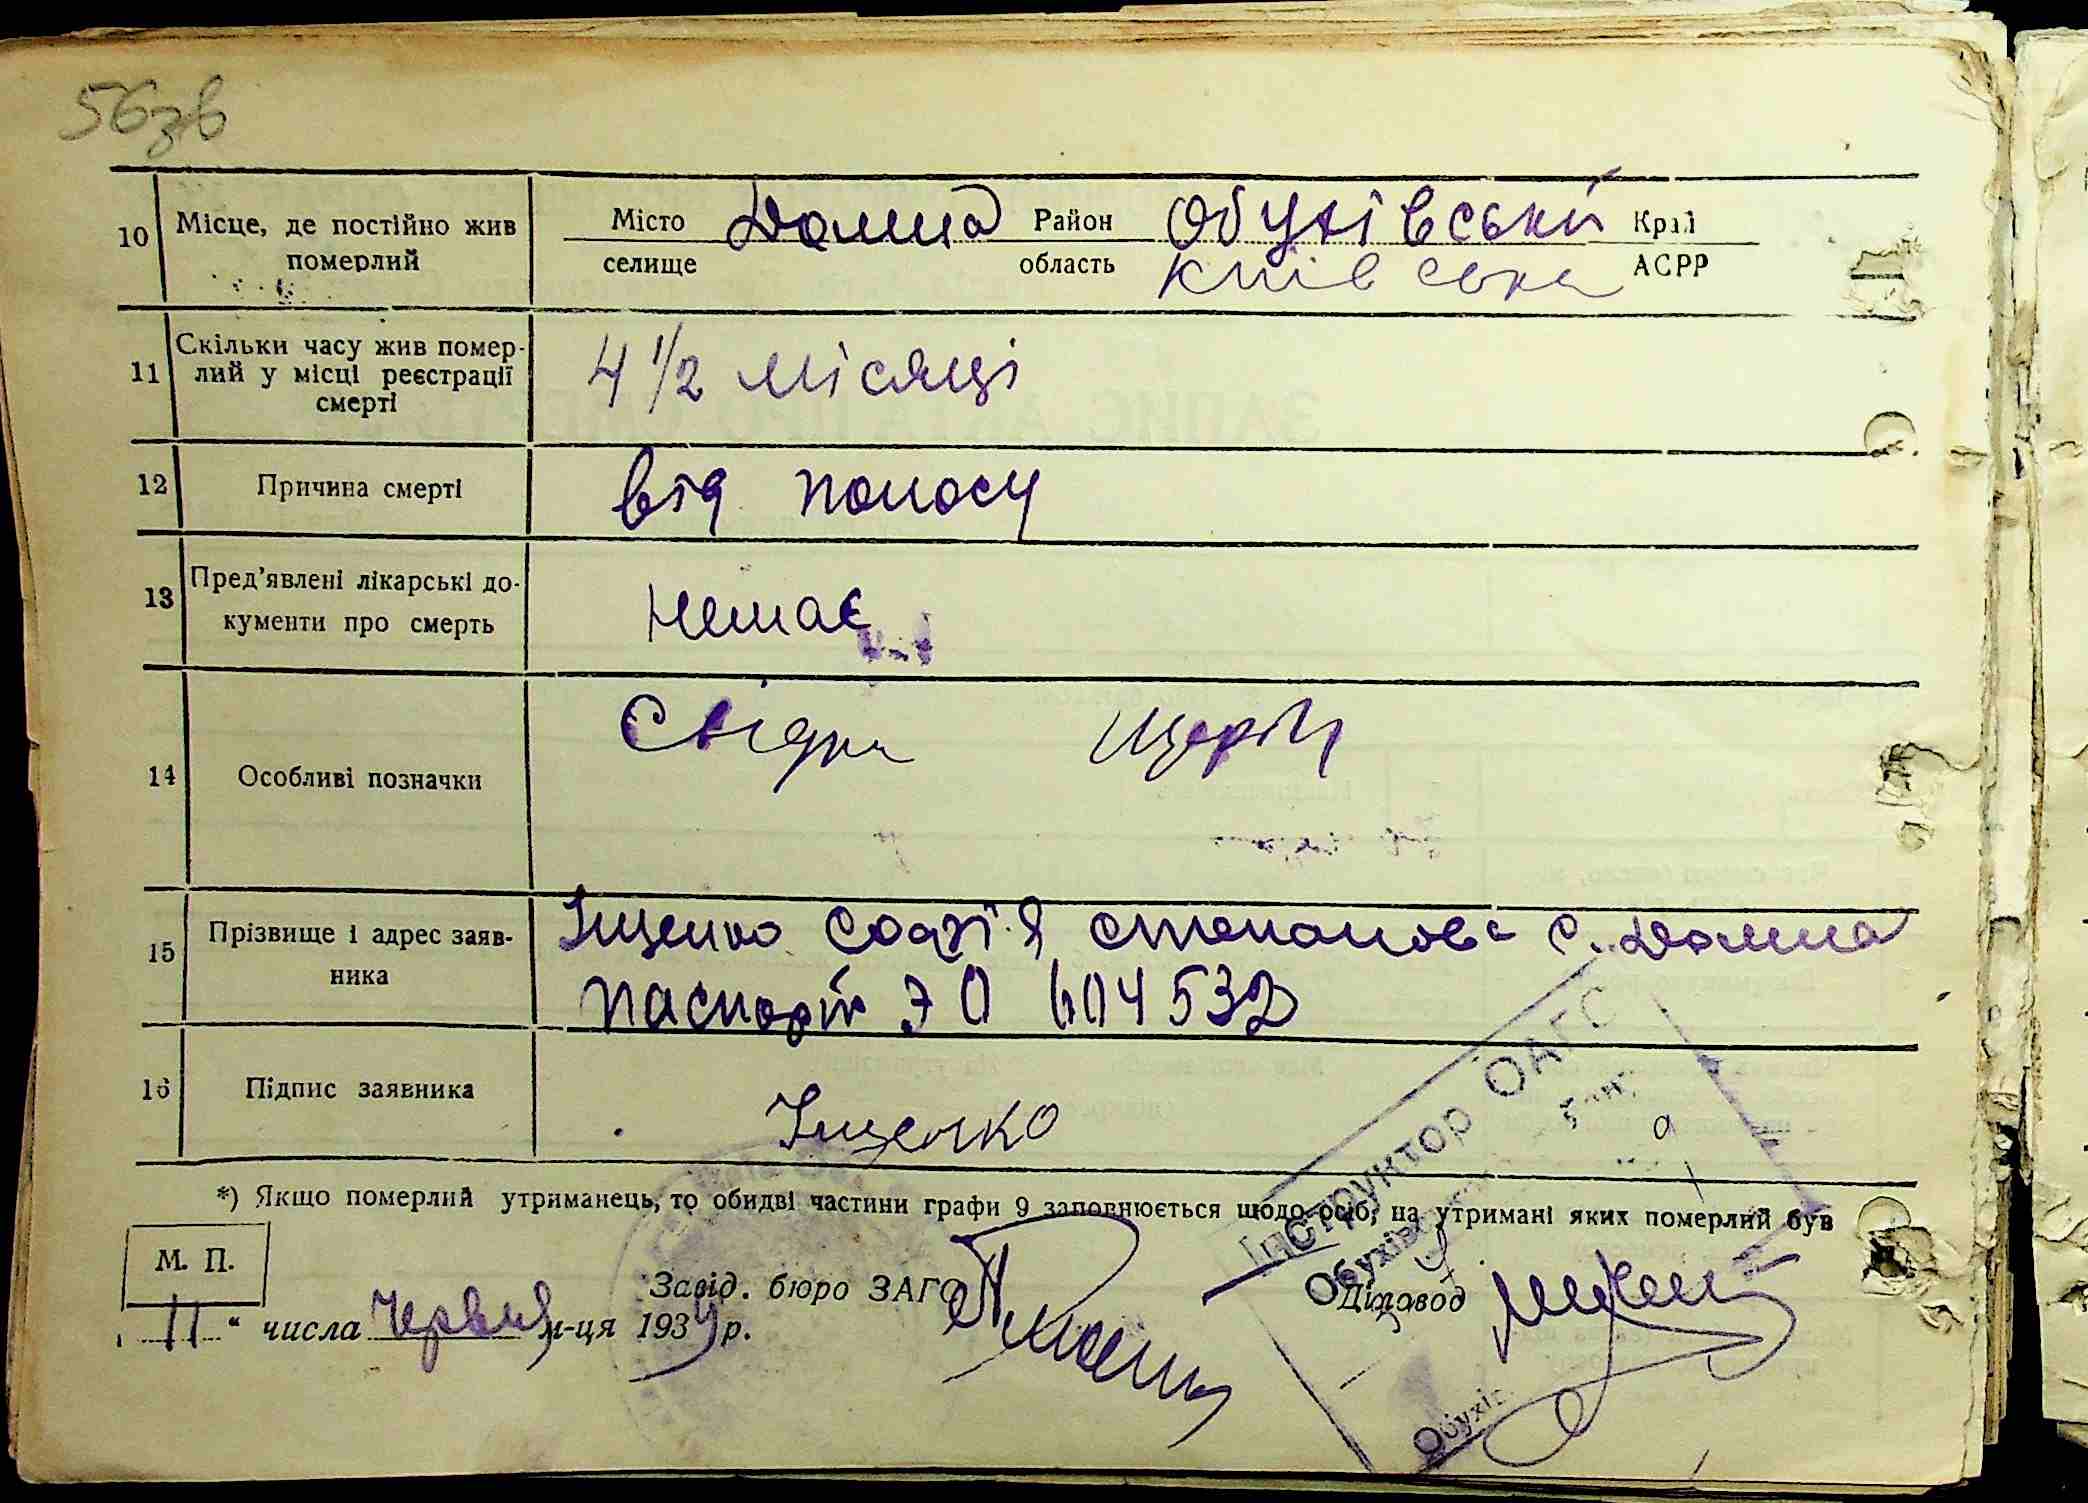 56зв
10 Місце, де постійно жив померлий Місто селище Долина Район область Обухівський Київська Край АСРР
11 Скільки часу жив помер-
лий у місці реєстрації
смерті
4 1/2 місяці
12 Причина смерті від поносу
13 Пред'явлені лікарські до-
кументи про смерть
немає
14 Особливі позначки Свідки
15 Прізвище і адрес заяв-
ника
Іщенко Софія Степанова с. Долина
паспорт ЭО 604532
16 Підпис заявника Іщенко
*) Якщо померлий утриманець, то обидві частини графи 9 заповнюється щодо осіб, на утримані яких померлий був
М. П.
Інструктор ОАГС
Обухів
Завід. бюро ЗАГС Діловод
„11“ числа Червня м-ця 1939 р.
Обухів